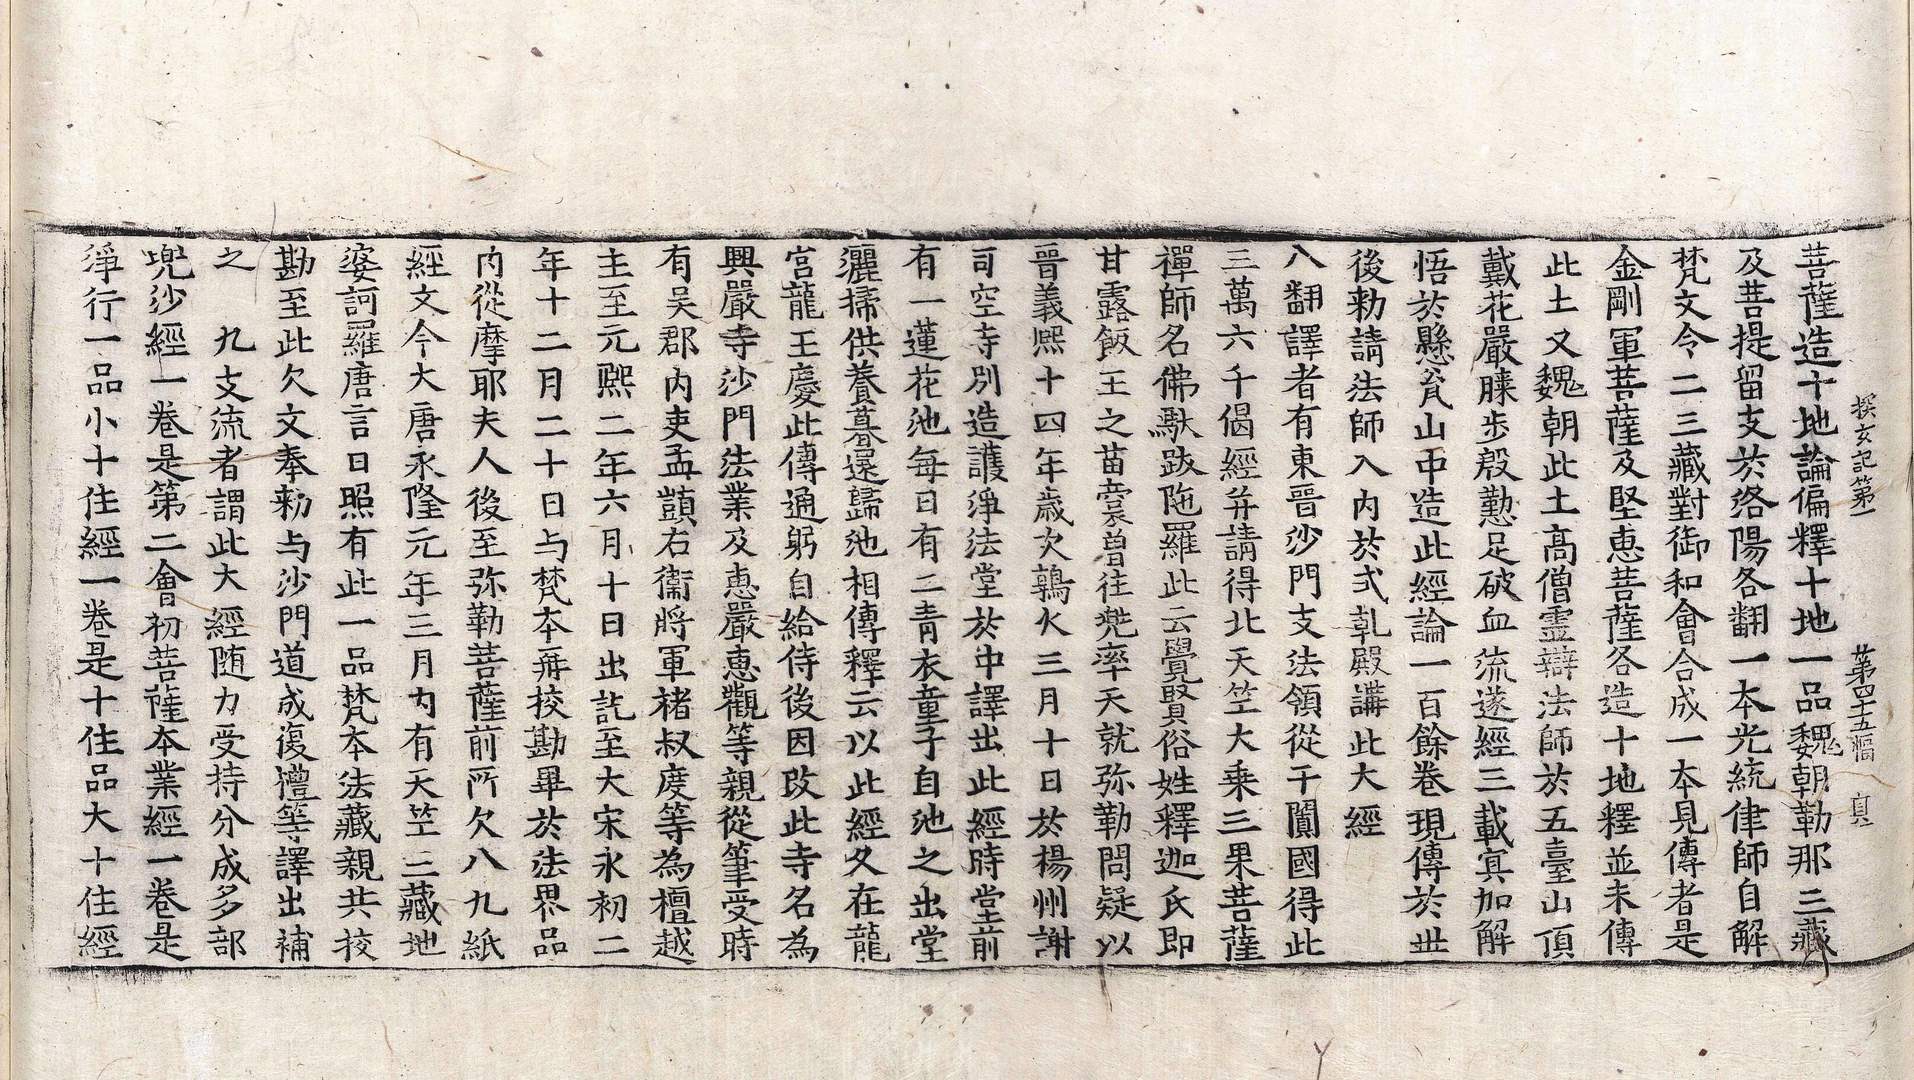 探玄記第一　第四十五幅　貞
菩薩造十地論偏釋十地一品魏朝勒那三藏
及菩提留支於洛陽各翻一本光統律師自解
梵文令二三藏對御和會合成一本見傳者是
金剛軍菩薩及堅恵菩薩各造十地釋並未傳
此土又魏朝此土高僧霊辯法師於五臺山頂
戴花嚴膝步殷懃足破血流遂經三載㝠加解
悟於懸瓮山中造此經論一百餘卷現傳於世
後勑請法師入內於式乹殿講此大經
八翻譯者有東晉沙門支法領從于闐國得此
三萬六千偈經幷請得北天竺大乗三果菩薩
禪師名佛䭾跋陁羅此云覺賢俗姓釋迦氏即
甘露飯王之苗裔曽往兠率天就弥勒問疑以
晉義熈十四年歳次鶉火三月十日於楊州謝
司空寺別造護淨法堂於中譯出此經時堂前
有一蓮花池每日有二青衣童子自池之出堂
灑掃供養暮還歸池相傳釋云以此經久在龍
宮龍王慶此傳通躬自給侍後因改此寺名為
興嚴寺沙門法業及恵嚴恵觀等親從筆受時
有吴郡內吏孟顗右衞將軍褚叔度等為檀越
主至元熈二年六月十日出訖至大宋永初二
年十二月二十日与梵夲再挍勘畢於法界品
內從摩耶夫人後至弥勒菩薩前所欠八九紙
經文今大唐永隆元年三月內有天竺三藏地
婆訶羅唐言日照有此一品梵夲法藏親共挍
勘至此欠文奉勑与沙門道成復禮等譯出補
之　九支流者謂此大經随力受持分成多部
兠沙經一卷是第二會初菩薩本業經一卷是
淨行一品小十住經一卷是十住品大十住經